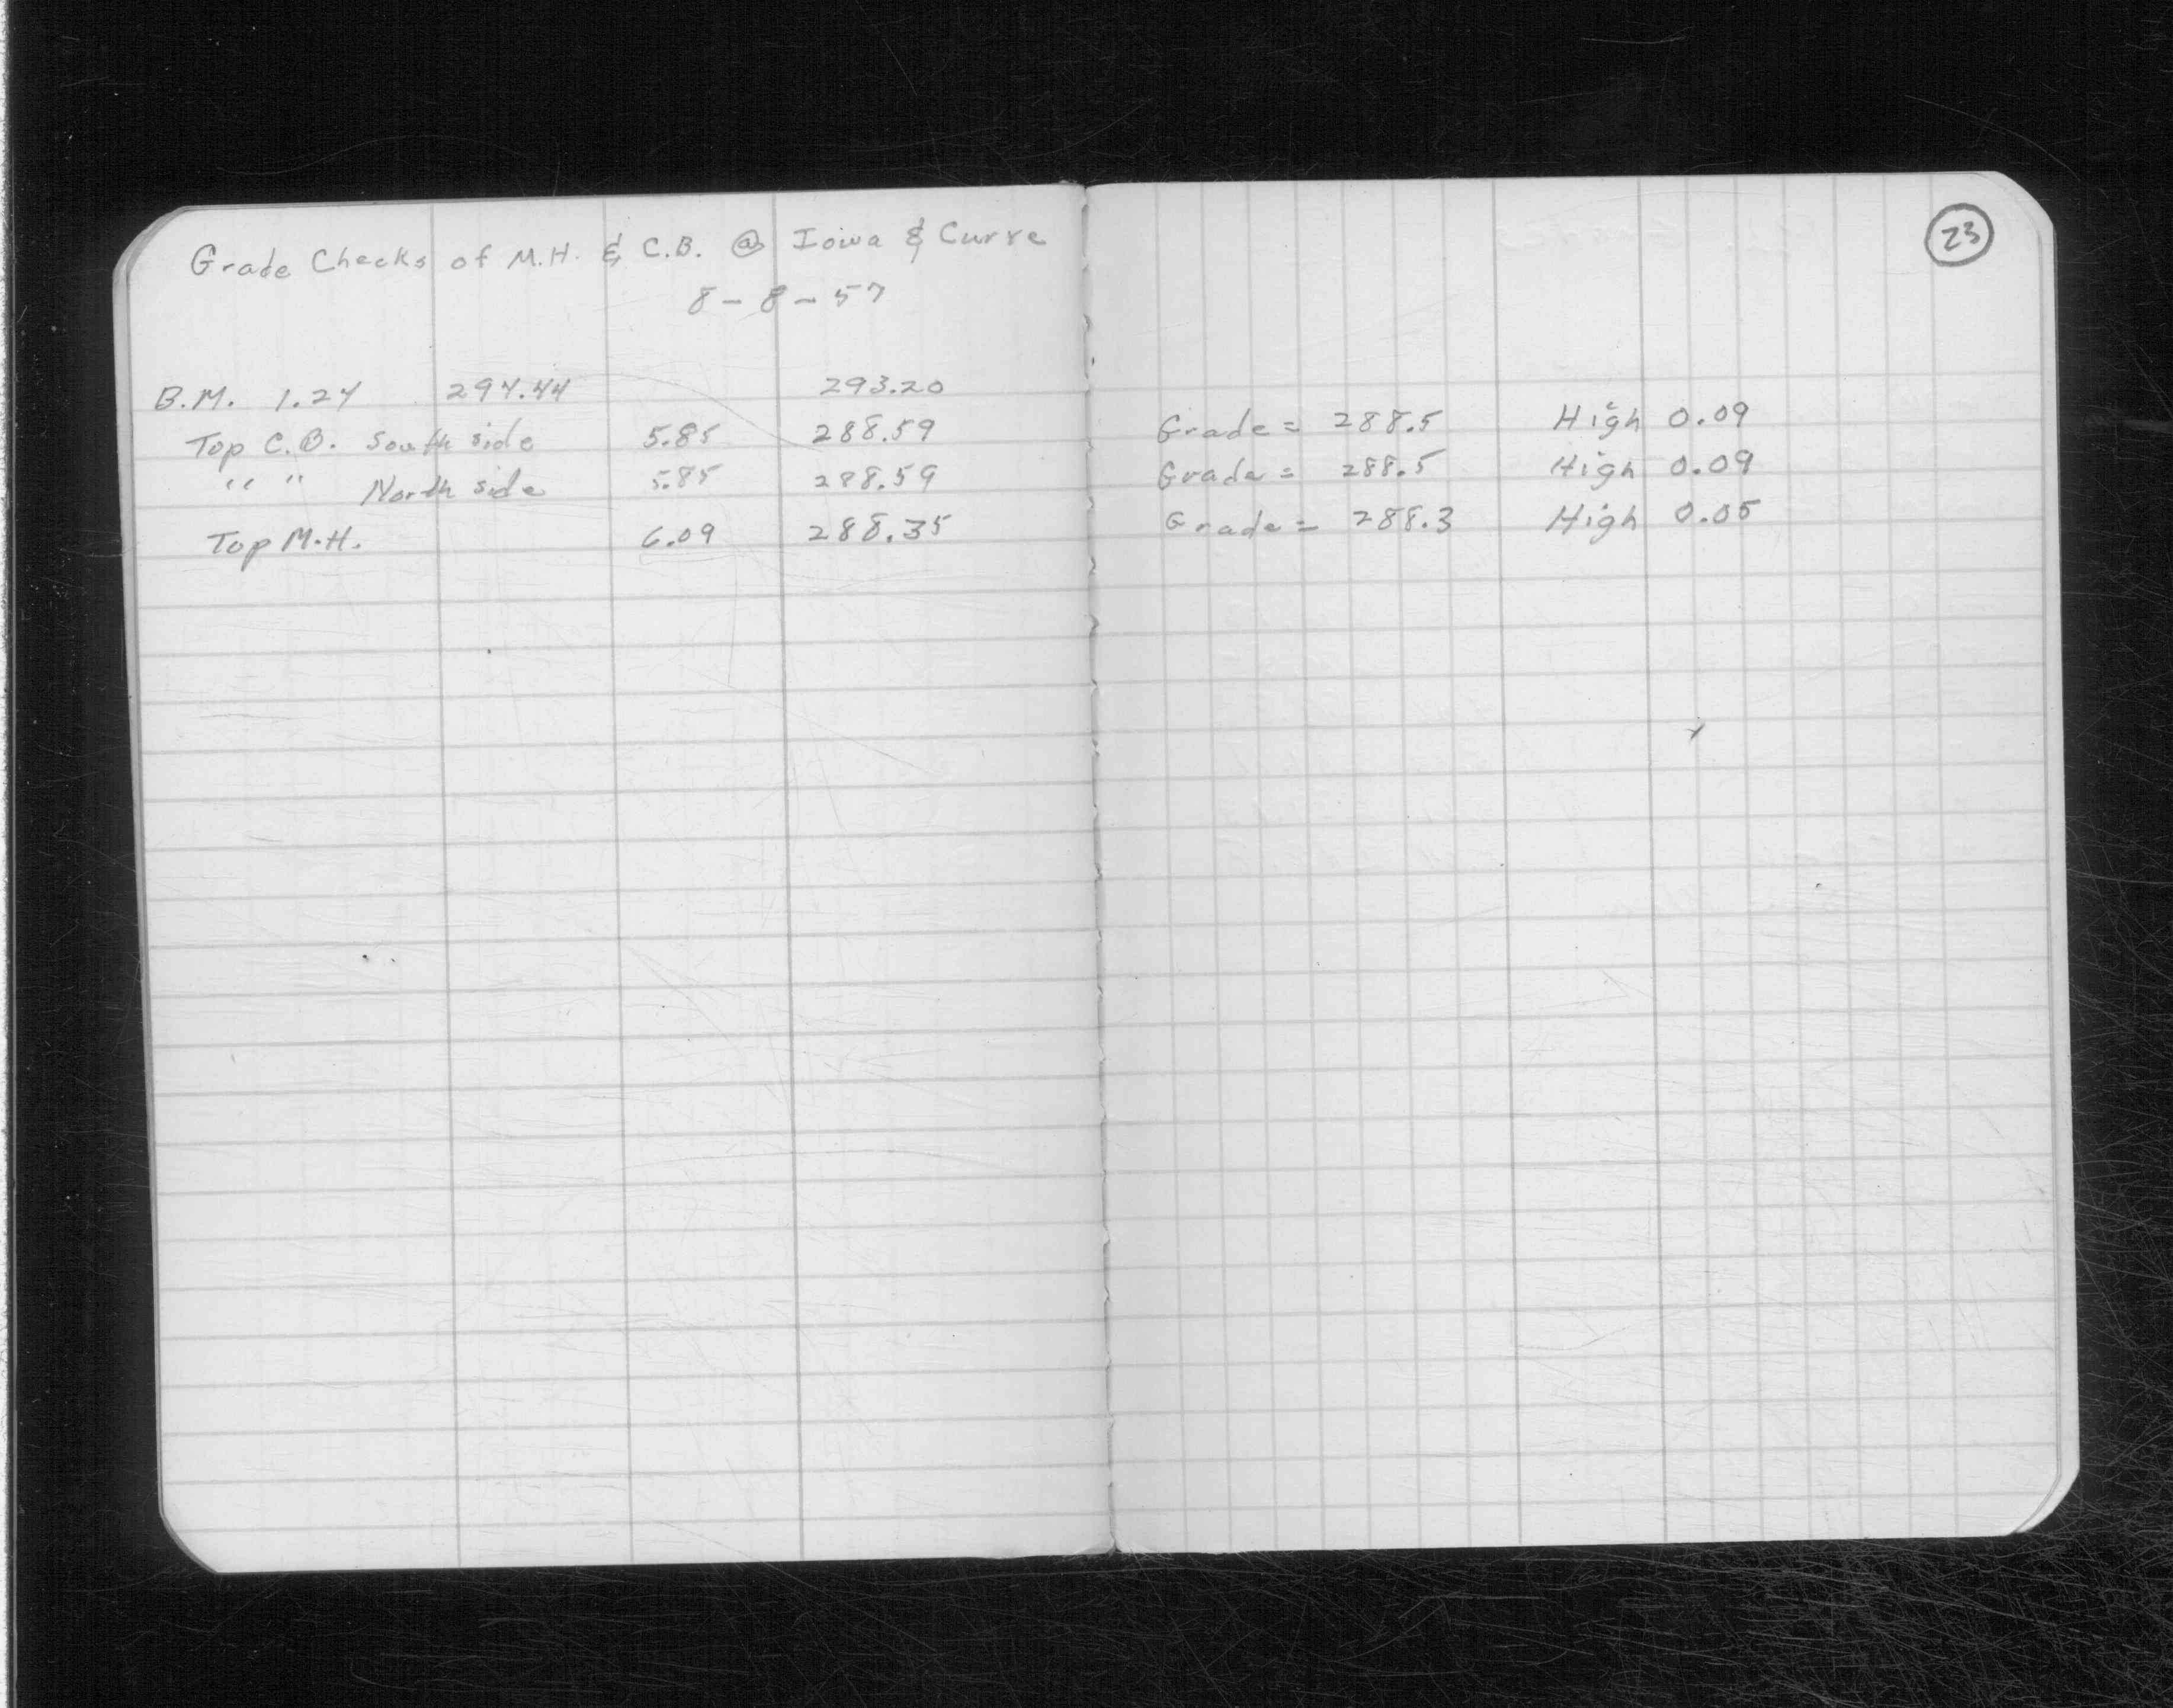 23
Grade Checks of M.H. & C.B. @ Iowa & Curve
8-8-57
B.M. 1.24 294.44 293.20
Top C.B. South side 5.85 288.59 Grade = 288.5 High 0.09
" " North side 5.85 288.59 Grade = 288.5 High 0.09
Top M.H. 6.09 288.35 Grade = 288.3 High 0.05